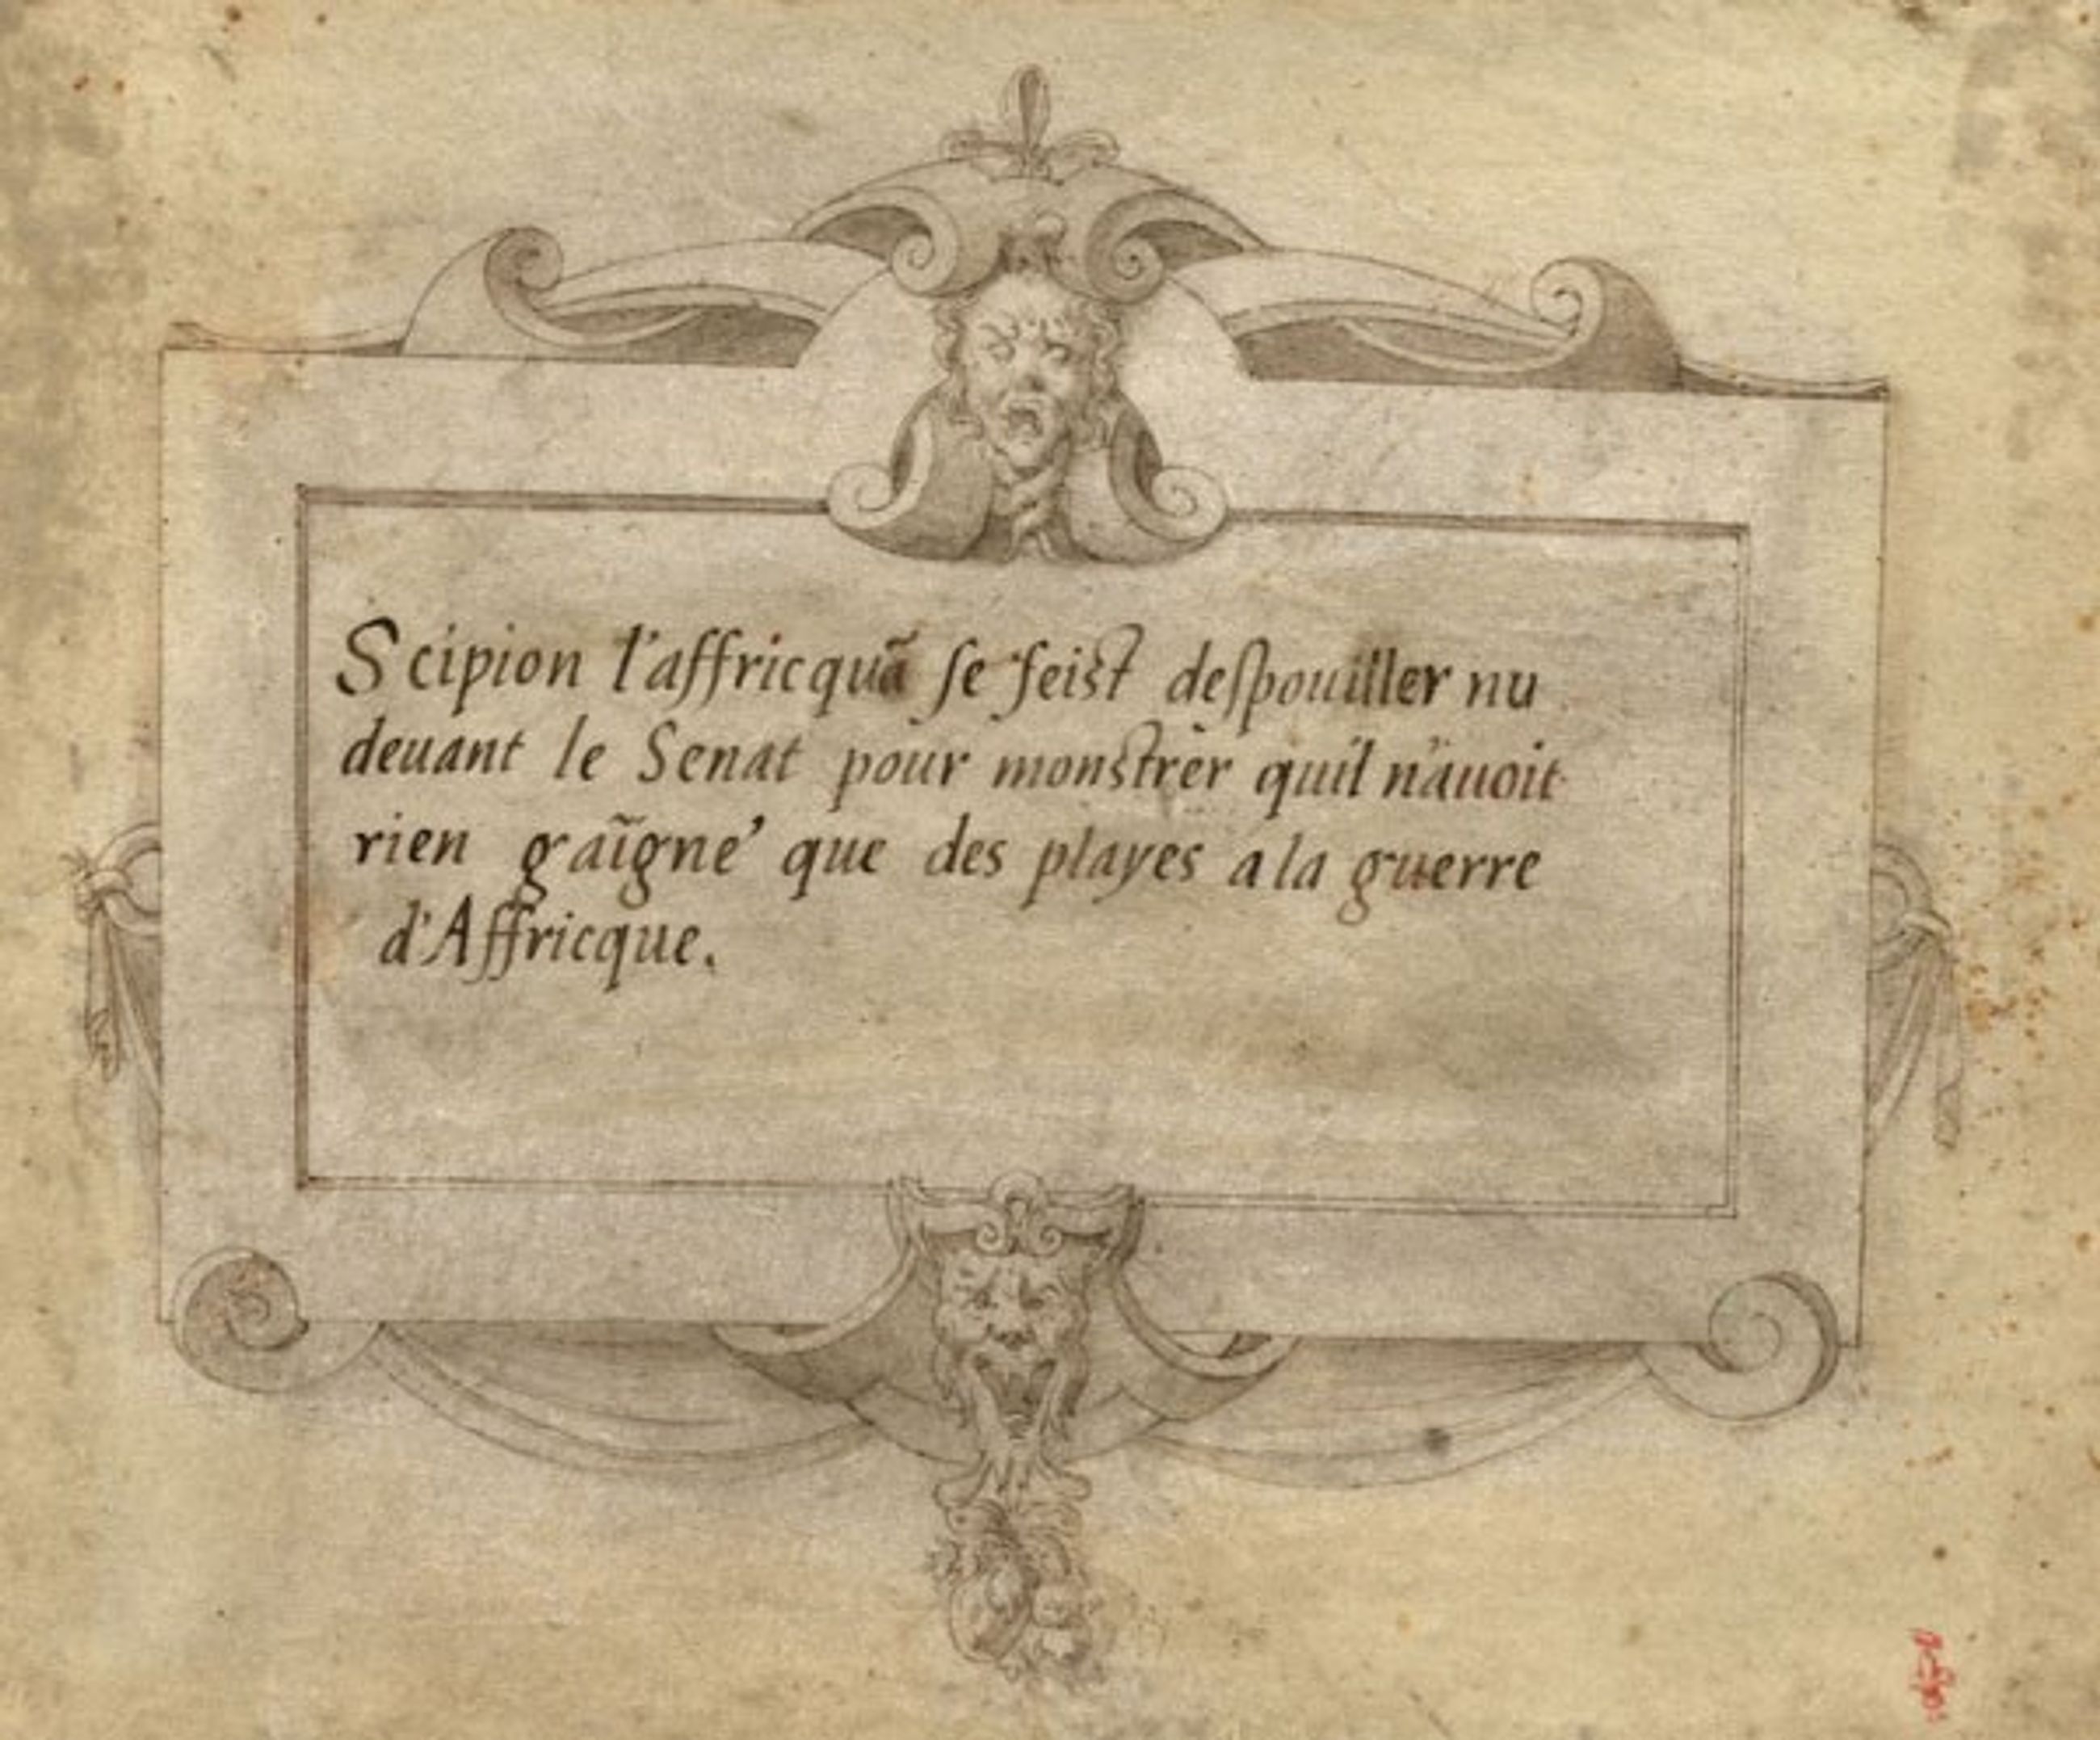 Scipion l'affricquã ſe feiſt deſpouiller nu
deuant le Senat pour monſtrer quil n'auoit
rien gaĩgne' que des playes a la guerre
d'Affricque.